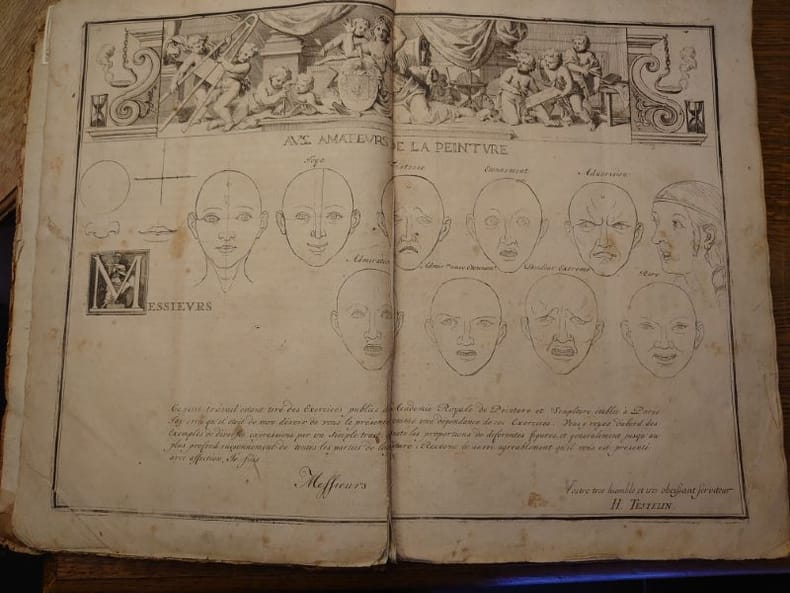 AVX AMATEURS DE LA PEINTVRE
Joye Tristesse Etonnement Adversion
Admiration Admir.on avec Etonnem.t Douleur Extreme Rire
MESSIEVRS
Ce petit travail estant tiré des Exercices publics de l'Academie Royale de Peinture et Sculpture establie à Paris
J'ay crû qu'il étoit de mon devoir de vous le presenter comme une dependance de ces Exercices. Vous y voyez d'abord des
Exemples de diverses expressions par un simple trait, toute les proportions de differentes figures, et generalement jusqu'au
plus profond raisonnement de toutes les parties de la Peinture; Recevez le aussi agreablement qu'il vous est presenté
avec affection, Je suis
Messieurs
Vostre tres humble et tres obeissant serviteur
H. TESTELIN